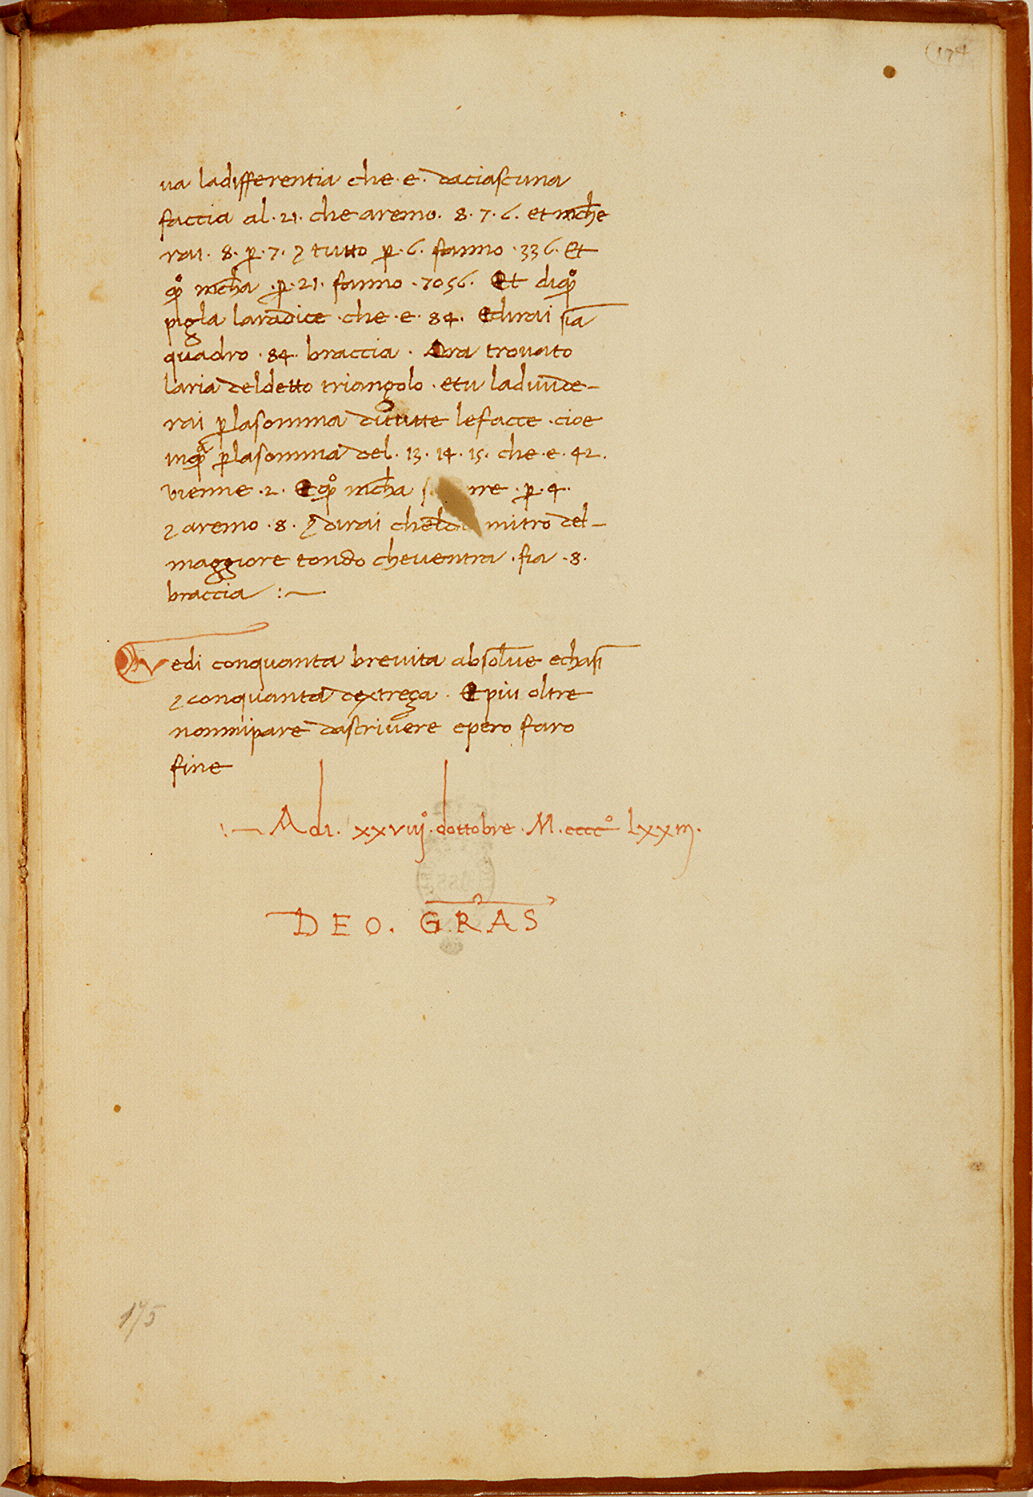 (174
ua ladifferentia che · e · daciascuna
faccia al · 21 · che aremo · 8 · 7 · 6 · et mc̄he
rai · 8 · p̱ · 7 · ⁊ tutto p̱ · 6 · fanno · 336 · Et
q̄sto mc̄ha · p̱ · 21 · fanno · 7056 · Et diq̄sto
pigla laradice · che · e · 84 · Edirai sia
quadro · 84 · braccia · Ora trovato
laria deldetto triangolo · etu laduide-
rai p̱lasomma ditutte lefacce · cioe
inq̄a p̱lasomma del · 13 · 14 · 15 · che · e · 42 ·
vienne · 2 · Eq̄sto mc̄ha p̱ · 4 ·
⁊ aremo · 8 · ⁊ dirai cheldia mitro del-
maggiore tondo cheventra · fia · 8 ·
braccia : —
Vedi conquanta brevita absolue echasi
⁊ conquanta dextreça · E piu oltre
nonmipare dascrivere epero faro
fine
: — Adi · xxviiijº · dottobre · M · ccccº lxxiij ·
DEO · GRAS
175